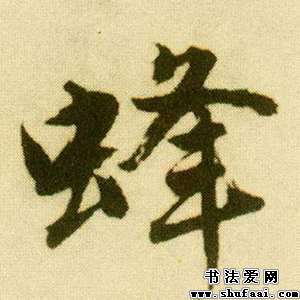 蜂
书法爱网
www.shufaai.com